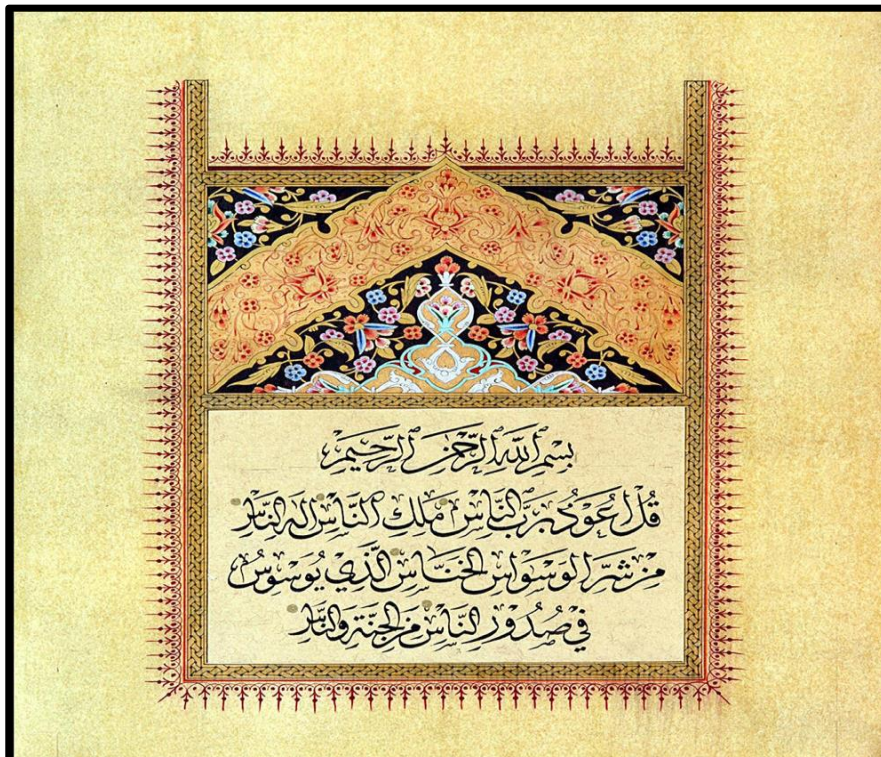 بسم الله الرحمن الرحيم
قل أعوذ برب الناس ملك الناس إله الناس
من شر الوسواس الخناس الذي يوسوس
في صدور الناس من الجنة والناس